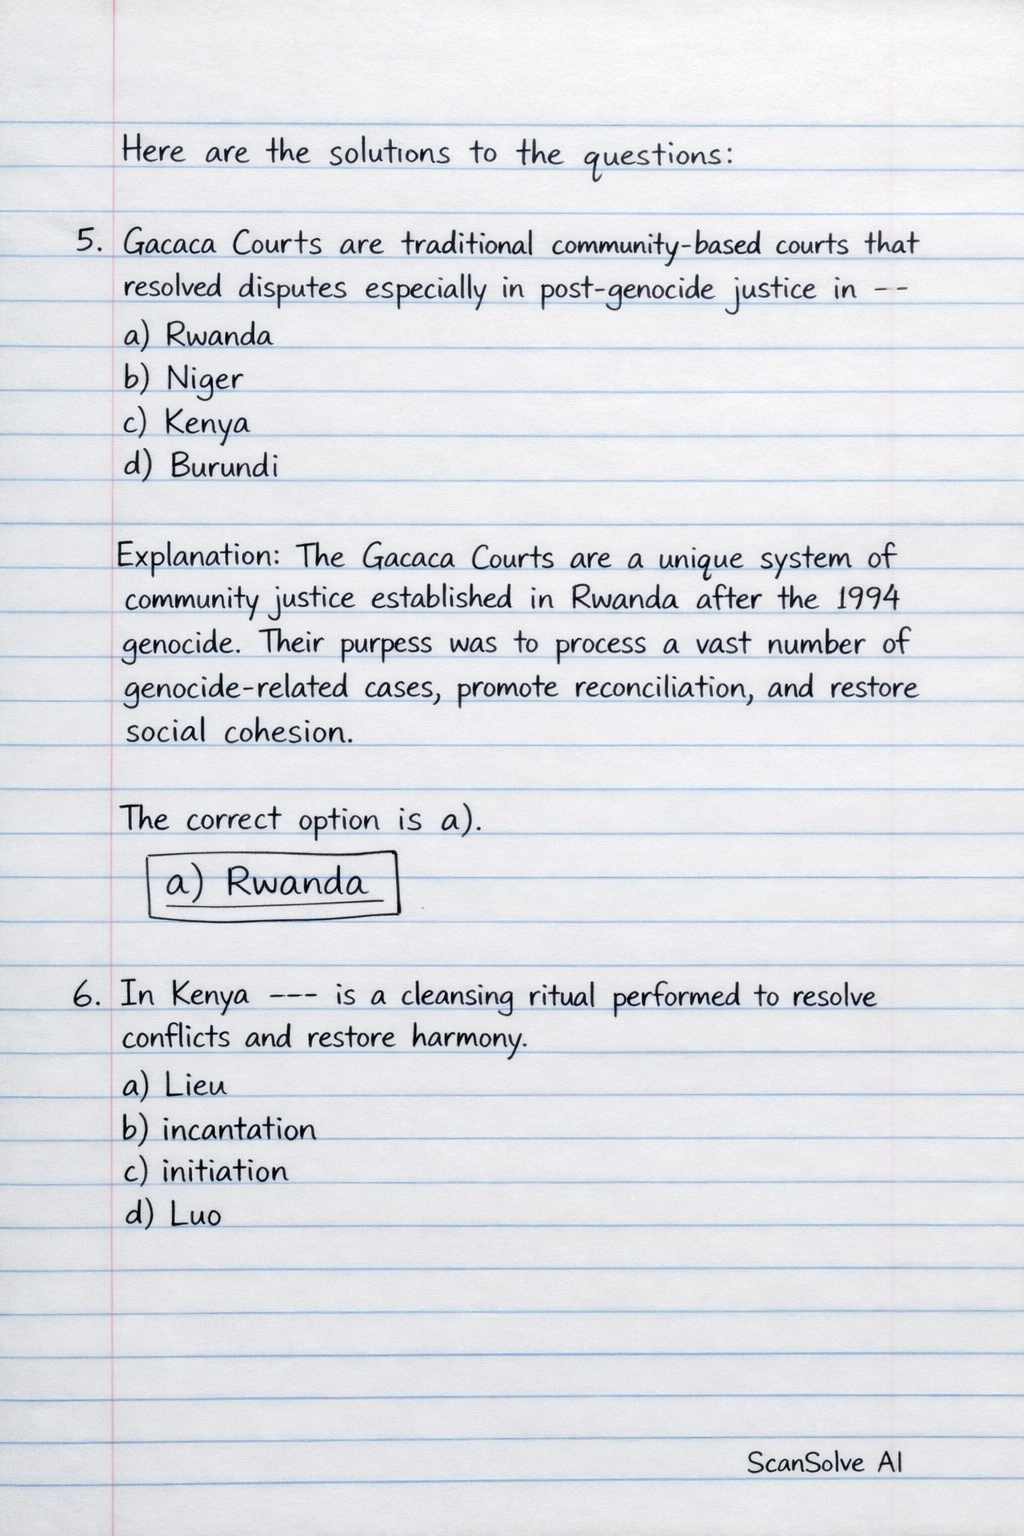 Here are the solutions to the questions:
5. Gacaca Courts are traditional community-based courts that
resolved disputes especially in post-genocide justice in --
a) Rwanda
b) Niger
c) Kenya
d) Burundi
Explanation: The Gacaca Courts are a unique system of
community justice established in Rwanda after the 1994
genocide. Their purpess was to process a vast number of
genocide-related cases, promote reconciliation, and restore
social cohesion.
The correct option is a).
a) Rwanda
6. In Kenya --- is a cleansing ritual performed to resolve
conflicts and restore harmony.
a) Lieu
b) incantation
c) initiation
d) Luo
ScanSolve AI